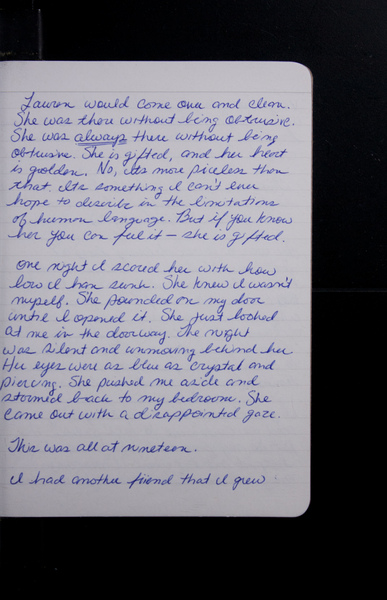 Lauren would come over and clean.
She was there without being obtrusive.
She was always there without being
obtrusive. She is gifted, and her heart
is golden. No, its more priceless then
that. Its something I can't ever
hope to describe in the limitations
of human language. But if you know
her you can feel it – she is gifted.
One night I scared her with how
low I had sunk. She knew I wasn't
myself. She pounded on my door
until I opened it. She just looked
at me in the doorway. The night
was silent and unmoving behind her
Her eyes were as blue as crystal and
piercing. She pushed me aside and
stormed back to my bedroom. She
came out with a disappointed gaze.
This was all at nineteen.
I had another friend that I grew